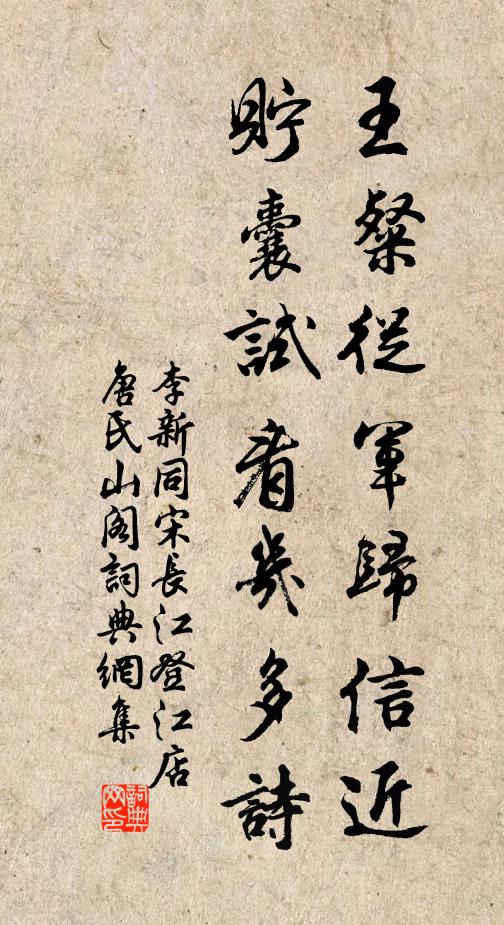 王粲從軍歸信近
貯囊試看幾多詩
李新同宋長江登江店
唐氏山阁詞典網集
詞典網印